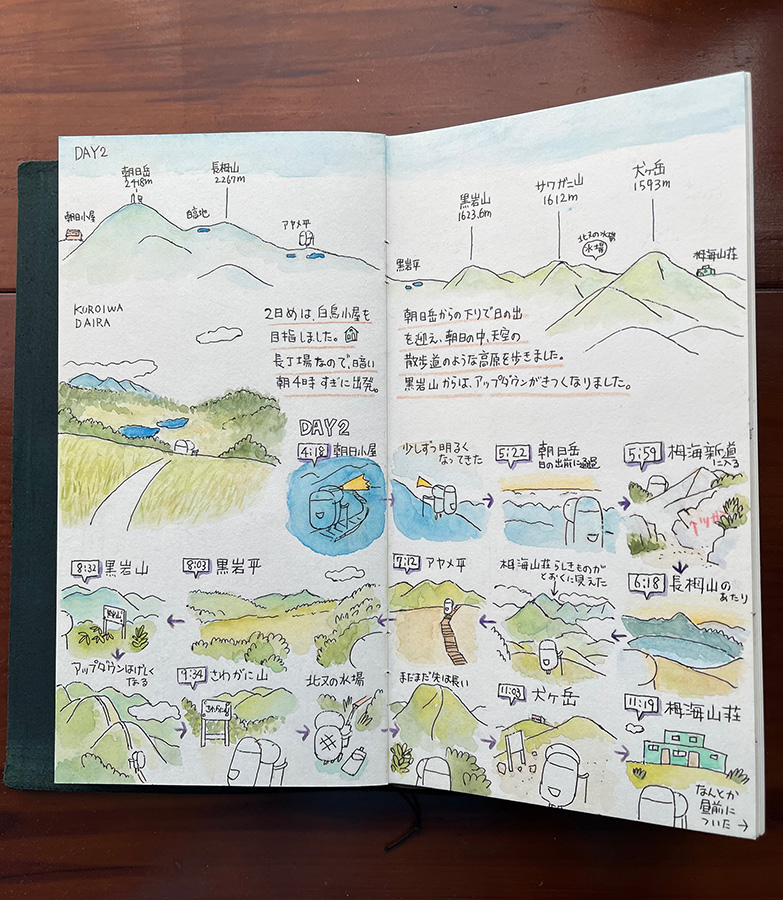 DAY2
朝日小屋
朝日岳
2418m
長栂山
2267m
白高地
アヤメ平
黒岩平
黒岩山
1623.6m
サワガニ山
1612m
北又の水場
水場
犬ヶ岳
1593m
栂海山荘
KUROIWA
DAIRA
2日めは、白鳥小屋を
目指しました。
長丁場なので、暗い
朝4時すぎに出発。
朝日岳からの下りで日の出
を迎え、朝日の中、天空の
散歩道のような高原を歩きました。
黒岩山からは、アップダウンがきつくなりました。
DAY2
4:18 朝日小屋
少しずつ明るく
なってきた
5:22 朝日岳
日の出前に通過
5:59 栂海新道
に入る
6:18 長栂山の
あたり
栂海山荘らしきものが
とおくに見えた
7:12 アヤメ平
8:03 黒岩平
8:32 黒岩山
アップダウンはげしく
なる
9:34 さわがに山
北又の水場
まだまだ先は長い
11:03 犬ヶ岳
11:19 栂海山荘
なんとか
昼前に
ついた →